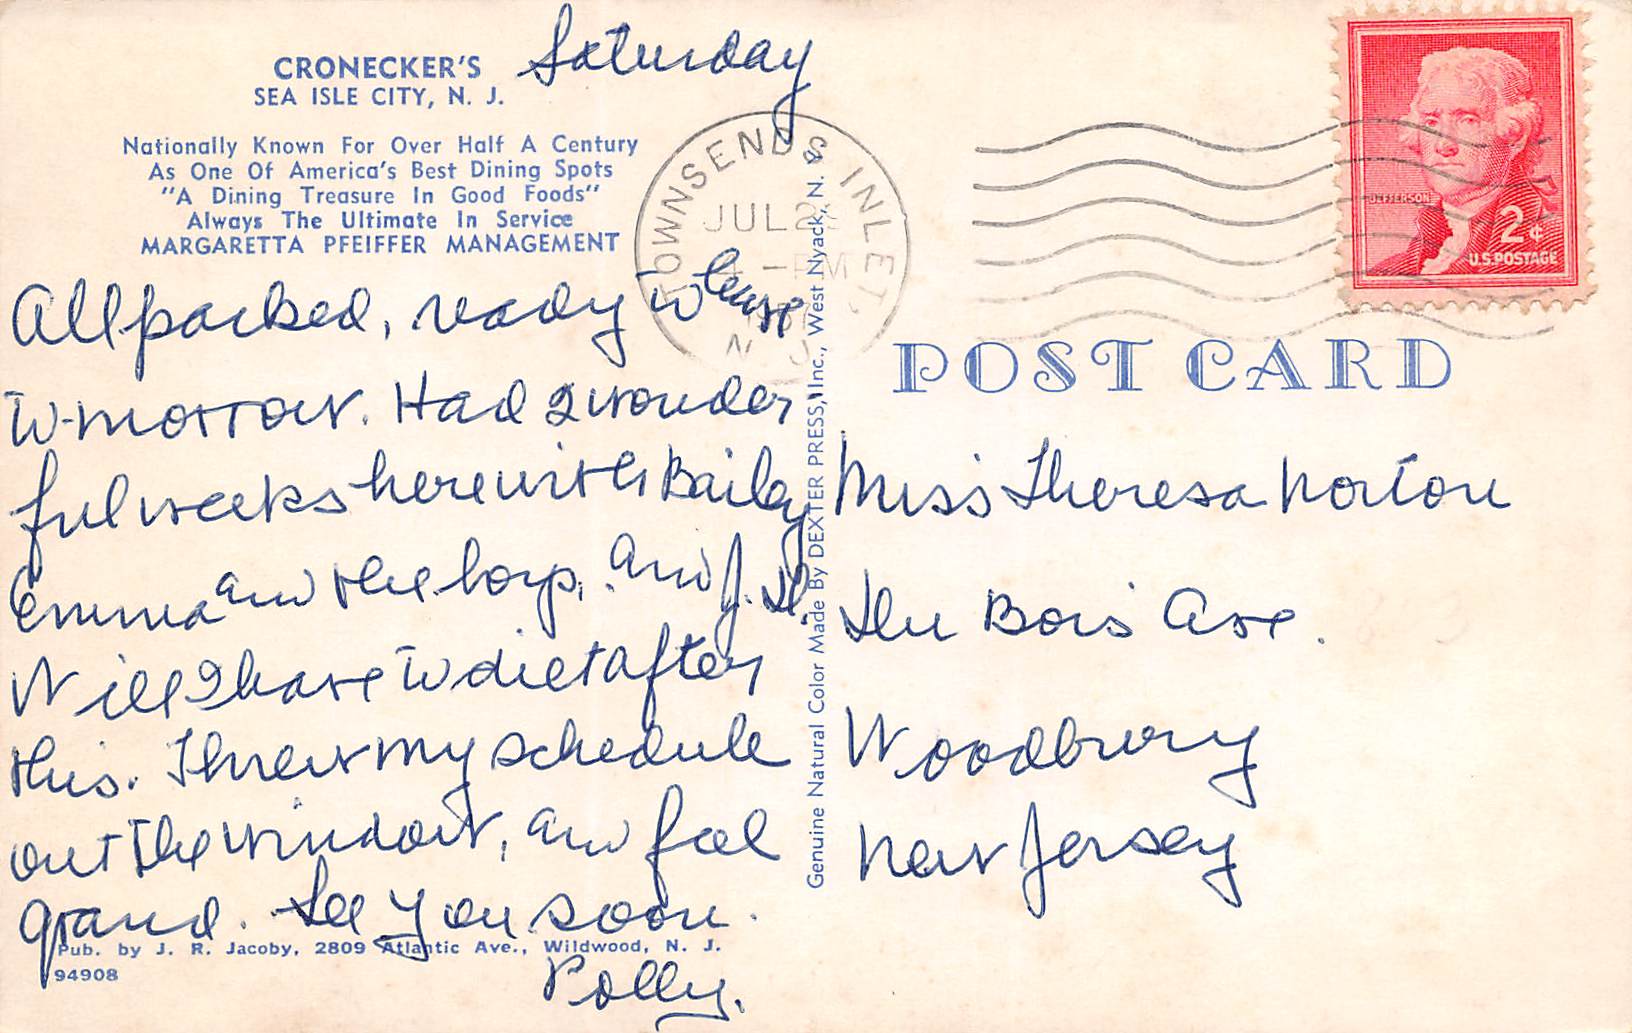 CRONECKER'S
SEA ISLE CITY, N. J.
Saturday
Nationally Known For Over Half A Century
As One Of America's Best Dining Spots
"A Dining Treasure In Good Foods"
Always The Ultimate In Service
MARGARETTA PFEIFFER MANAGEMENT
All packed, ready to leave
to-morrow. Had 2 wonder
ful weeks here with Bailey
Emma and the boys, and J.
Will I have to diet after
this. Threw my schedule
out the window, and feel
grand. See you soon.
Polly.
Pub. by J. R. Jacoby, 2809 Atlantic Ave., Wildwood, N. J.
94908
Genuine Natural Color Made By DEXTER PRESS, Inc., West Nyack, N. Y.
TOWNSENDS INLET,
JUL 2
PM
1957
N. J.
JEFFERSON
2¢
U.S. POSTAGE
POST CARD
Miss Theresa Norton
Du Bois Ave.
Woodbury
New Jersey